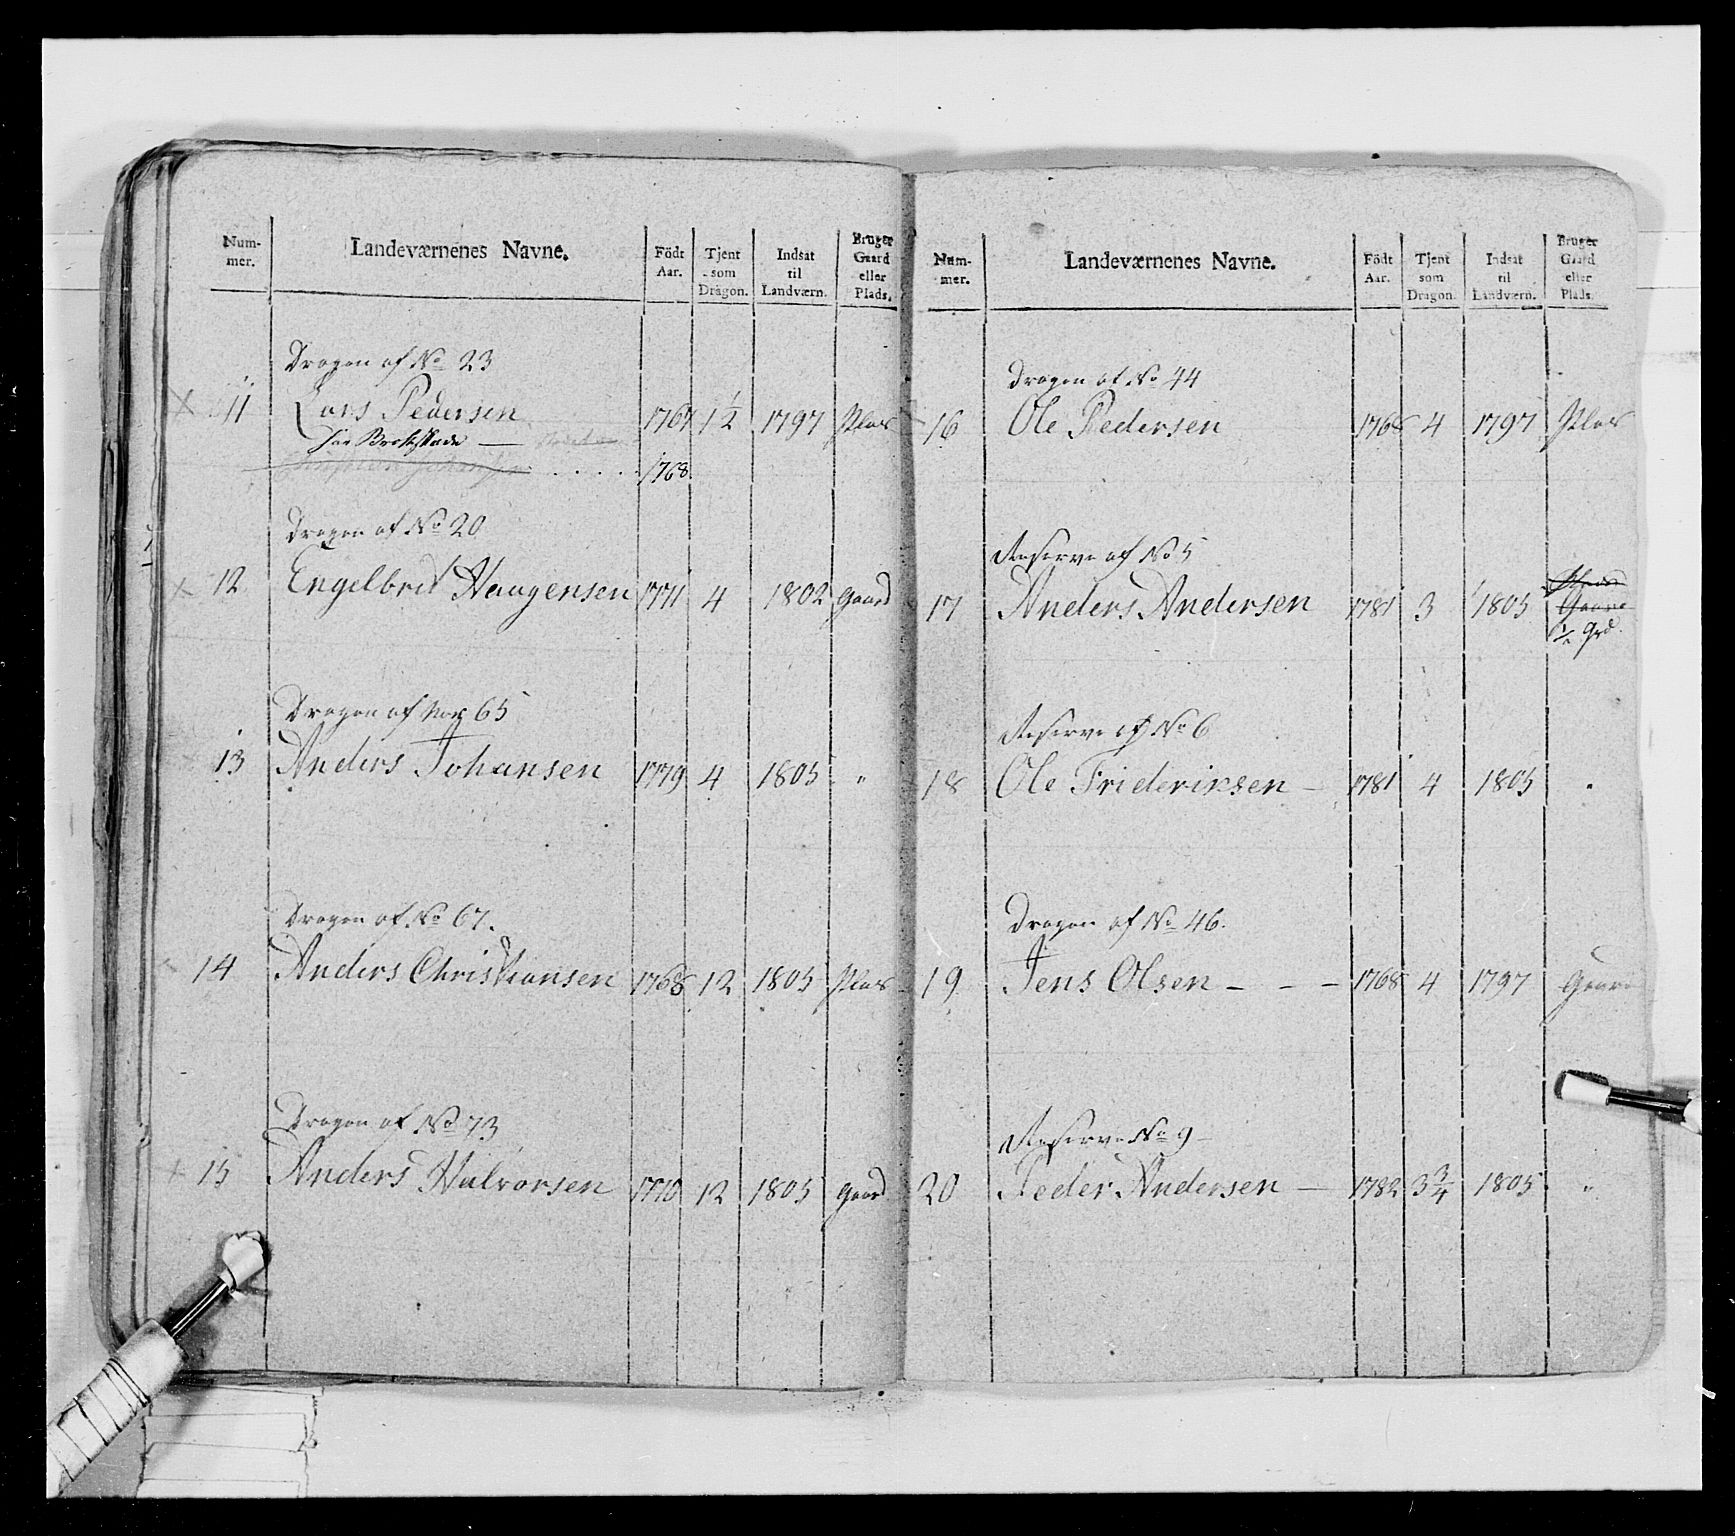 Num-
mer.
Landeværnenes Navne.
Födt
Aar.
Tjent
som
Dragon.
Indsat
til
Landværn.
Bruger
Gaard
eller
Plads.
Dragon af No 23
11 Lars Pedersen 1767 1½ 1797 Plas
har Brokskade
1768
Dragon af No 20
12 Engelbret Haagensen 1771 4 1802 Gaard
Dragon af Nor 65
13 Anders Johansen 1779 4 1805 "
Dragon af No 67.
14 Anders Christiansen 1768 12 1805 Plas
Dragon af No 73
15 Anders Halvorsen 1770 12 1805 Gaard
Num-
mer.
Landeværnenes Navne.
Födt
Aar.
Tjent
som
Dragon.
Indsat
til
Landværn.
Bruger
Gaard
eller
Plads.
Dragon af No 44
16 Ole Pedersen 1768 4 1797 Plas
Reserve af No 5
17 Anders Andersen 1781 3 1805 Gaard
½ Grd.
Reserve af No 6
18 Ole Frideriksen – 1781 4 1805 "
Dragon af No 46.
19 Jens Olsen – – – 1768 4 1797 Gaard
Reserve No 9 –
20 Peder Andersen – 1782 3¾ 1805 "